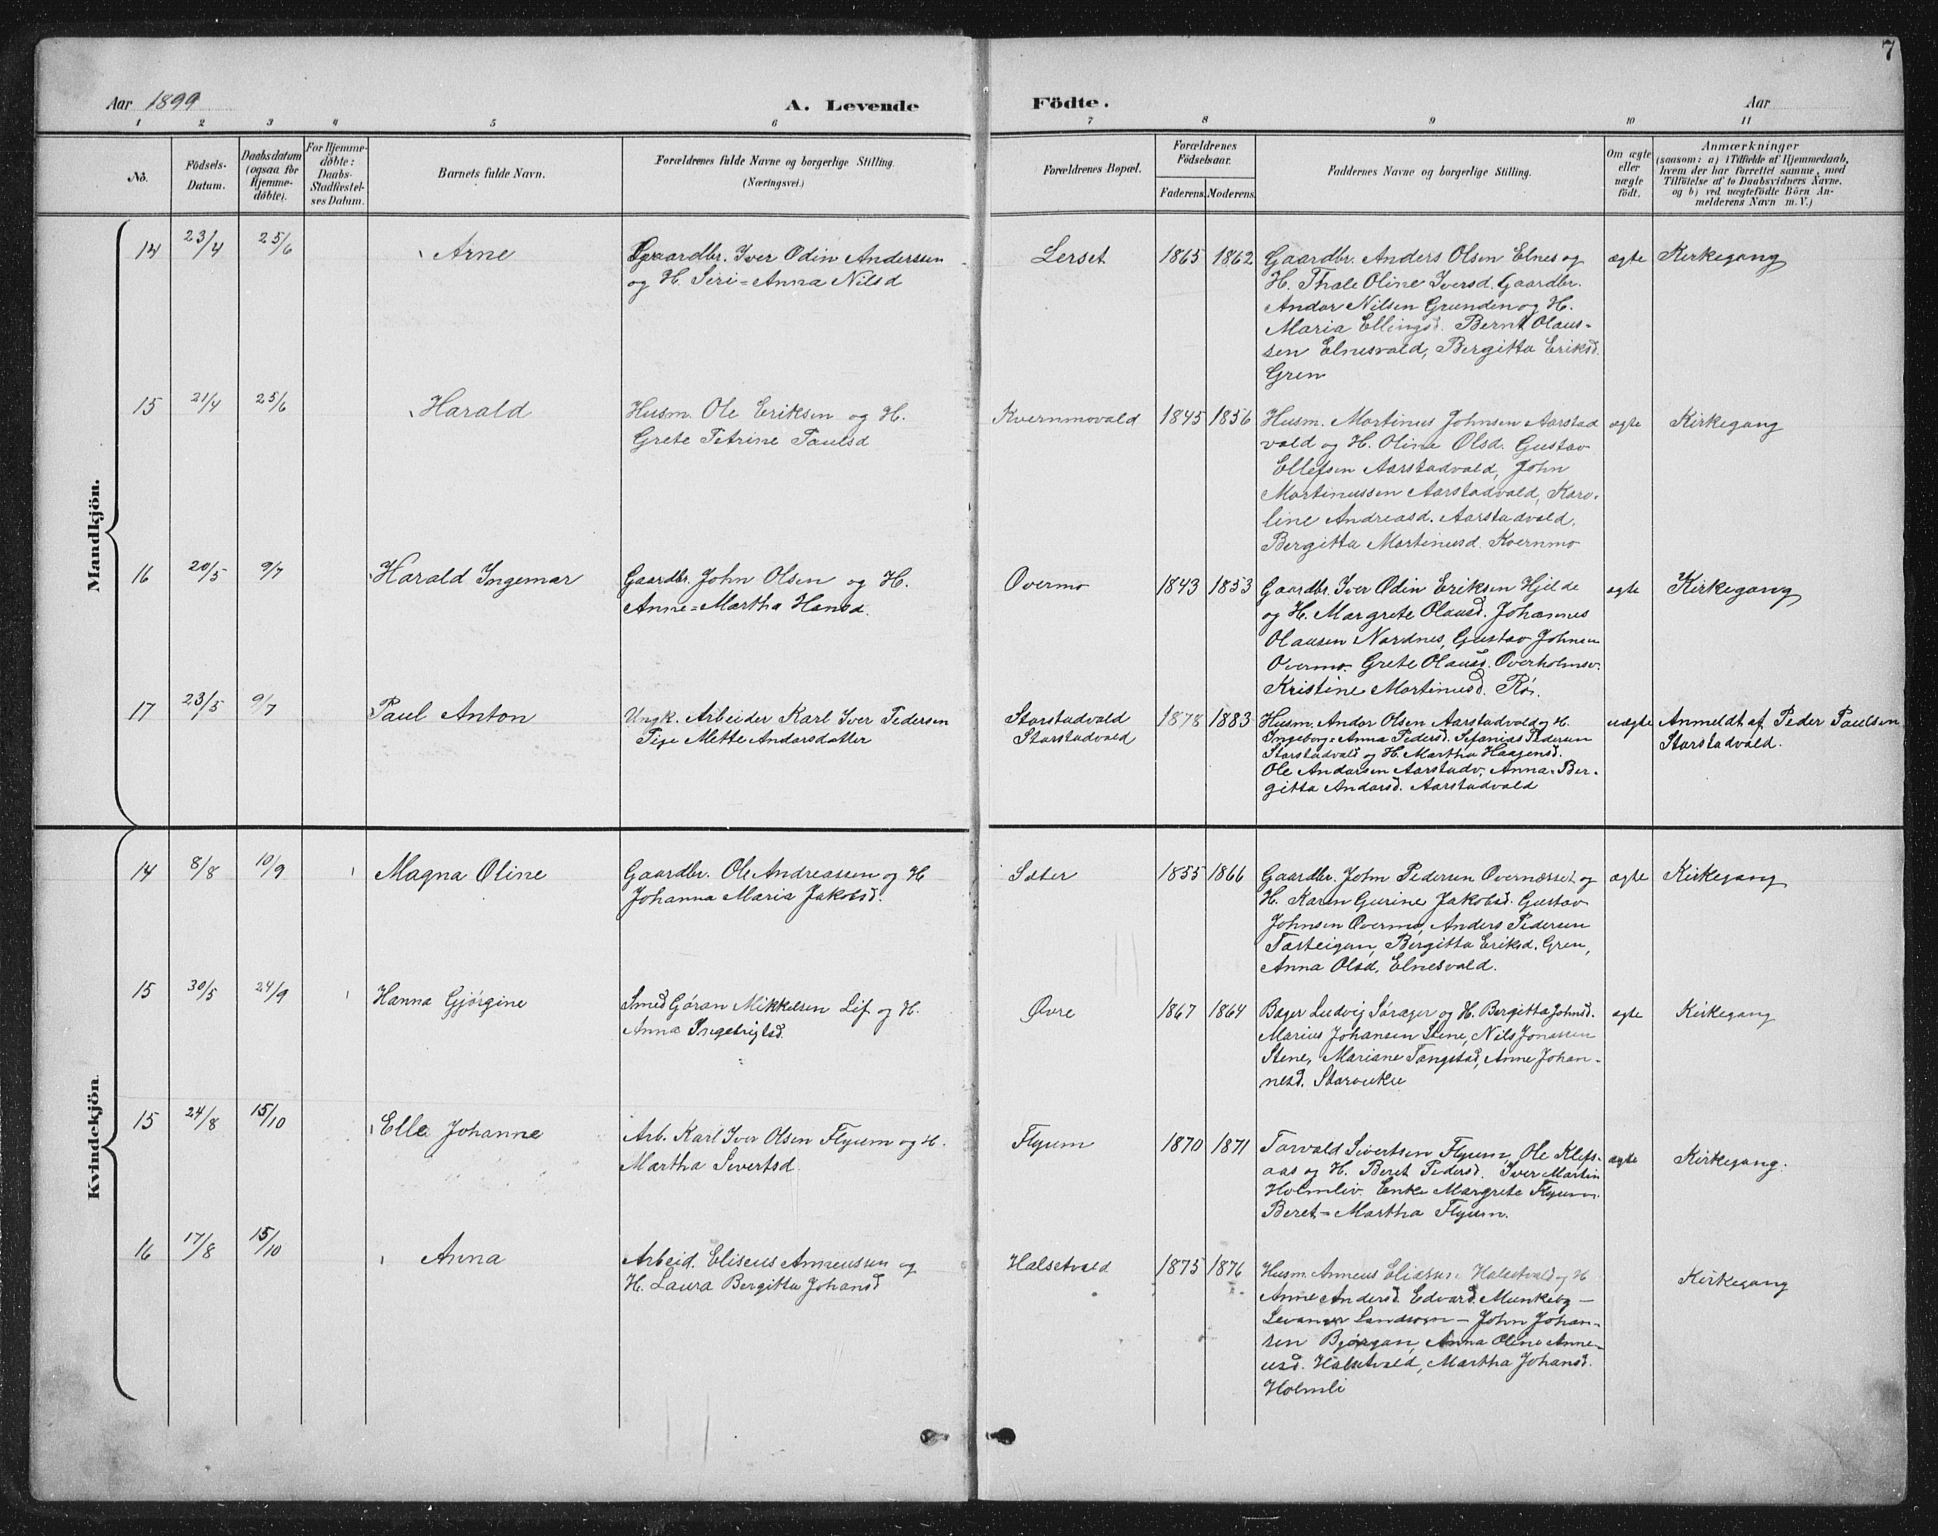 7
Aar 1899
A. Levende
Födte.
Aar
1 2 3 4 5 6 7 8 9 10 11
No.
Födsels-
Datum.
Daabsdatum
(ogsaa for
Hjemme-
døbte).
For Hjemme-
døbte:
Daabs-
Stadfæstel-
ses Datum.
Barnets fulde Navn.
Forældrenes fulde Navne og borgerlige Stilling.
(Næringsvei.)
Forældrenes Bopæl.
Forældrenes
Fødselsaar.
Faderens. Moderens.
Faddernes Navne og borgerlige Stilling.
Om ægte
eller
uægte
født.
Anmærkninger
(saasom: a) i Tilfælde af Hjemmedaab,
hvem der har forrettet samme, med
Tilføielse af to Daabsvidners Navne.
og b) ved uægtefødte Börn An-
melderens Navn m. V.)
Mandkjön.
14 23/4 25/6 Arne
Gaardbr. Iver Odin Anderssen
og H. Siri=Anna Nilsd
Lerset 1865 1862
Gaardbr. Anders Olsen Elnes og
H. Thale Oline Iversd. Gaardbr.
Andor Nilsen Grunden og H.
Maria Ellingsd. Bernt Olaus-
sen Elnesvald, Bergitta Eriksd.
Gren
ægte Kirkegang
15 21/4 25/6 Harald
Husm. Ole Eriksen og H.
Grete Petrine Paulsd
Kvernmovald 1845 1856
Husm. Martinus Johnsen Aarstad
vald og H. Olina Olsd. Gustav
Ellefsen Aarstadvald, John
Martinussen Aarstadvald, Karo-
line Andreasd. Aarstadvald.
Bergitta Martinusd. Kvernmo
ægte Kirkegang
16 20/5 9/7 Harald Ingemar
Gaardbr. John Olsen og H.
Anne=Martha Hansd.
Overmo 1843 1853
Gaardbr. Iver Odin Eriksen Hjelde
og H. Margrete Olausd. Johannes
Olausen Nordnes, Gustav Johnsen
Overmo. Grete Olausd. Overholmsv.
Kristine Martinusd. Rös.
ægte Kirkegang
17 23/5 9/7 Paul Anton
Ungk. Arbeider Karl Iver Pedersen
Pige Mette Andorsdatter
Storstadvald
Storstadvald
1878 1883
Husm. Andor Olsen Aarstadvald og H.
Ingeborg=Anna Pedersd. Sefanias Pedersen
Storstadvald og H. Martha Haagensd.
Ole Andorsen Aarstadv, Anna-Ber-
gitta Andorsd. Aarstadvald
uægte Anmeldt af Peder Paulsen
Storstadvald.
Kvindekjön.
14 8/8 10/9 Magna Oline
Gaardbr. Ole Andreassen og H
Johanna Maria Jakobsd.
Sæter 1855 1866
Gaardbr. John Pedersen Overnæsset og
H. Karen Gurine Jakobsd. Gustav
Johnsen Overmo, Anders Pedersen
Tørteigan, Bergitta Eriksd. Gren,
Anna Olsd, Elnesvald.
ægte Kirkegang
15 30/5 24/9 Hanna Gjörgine
Smed Göran Mikkelsen Lif og H.
Anna Ingebrigtsd.
Øvre 1867 1864
Bager Ludvig Sörager og H. Bergitta Johnsd.
Marius Johansen Stene, Nils Jonassen
Stene, Mariane Tangstad, Anne Johan-
nesd. Storvuku
ægte Kirkegang
15 24/8 15/10 Elle Johanne
Arb. Karl Iver Olsen Flyum og H.
Martha Sivertsd.
Flyum 1870 1871
Torvald Sivertsen Flyum, Ole Klefs-
aas og H. Beret Pedersd. Iver Martin
Holmliv. Enke Margrete Flyum.
Beret=Martha Flyum.
ægte Kirkegang.
16 17/8 15/10 Anna
Arbeid. Eliseus Anneussen og
H. Laura Bergitta Johansd
Halsetvald 1875 1876
Husm. Anneus Eliasen Halsetvald og H
Anne Andersd. Edvard Munkeby -
Levanger Landsogn - John Johan-
sen Bjørgan, Anna Oline Anne-
usd. Halsetvald, Martha Johansd.
Holmli
Kirkegang